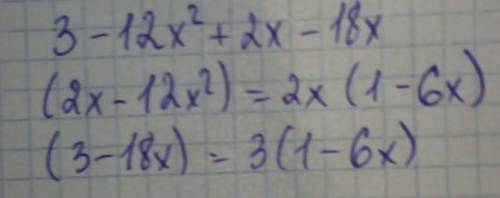 3 - 12x² + 2x - 18x
(2x - 12x²) = 2x (1 - 6x)
(3 - 18x) = 3 (1 - 6x)